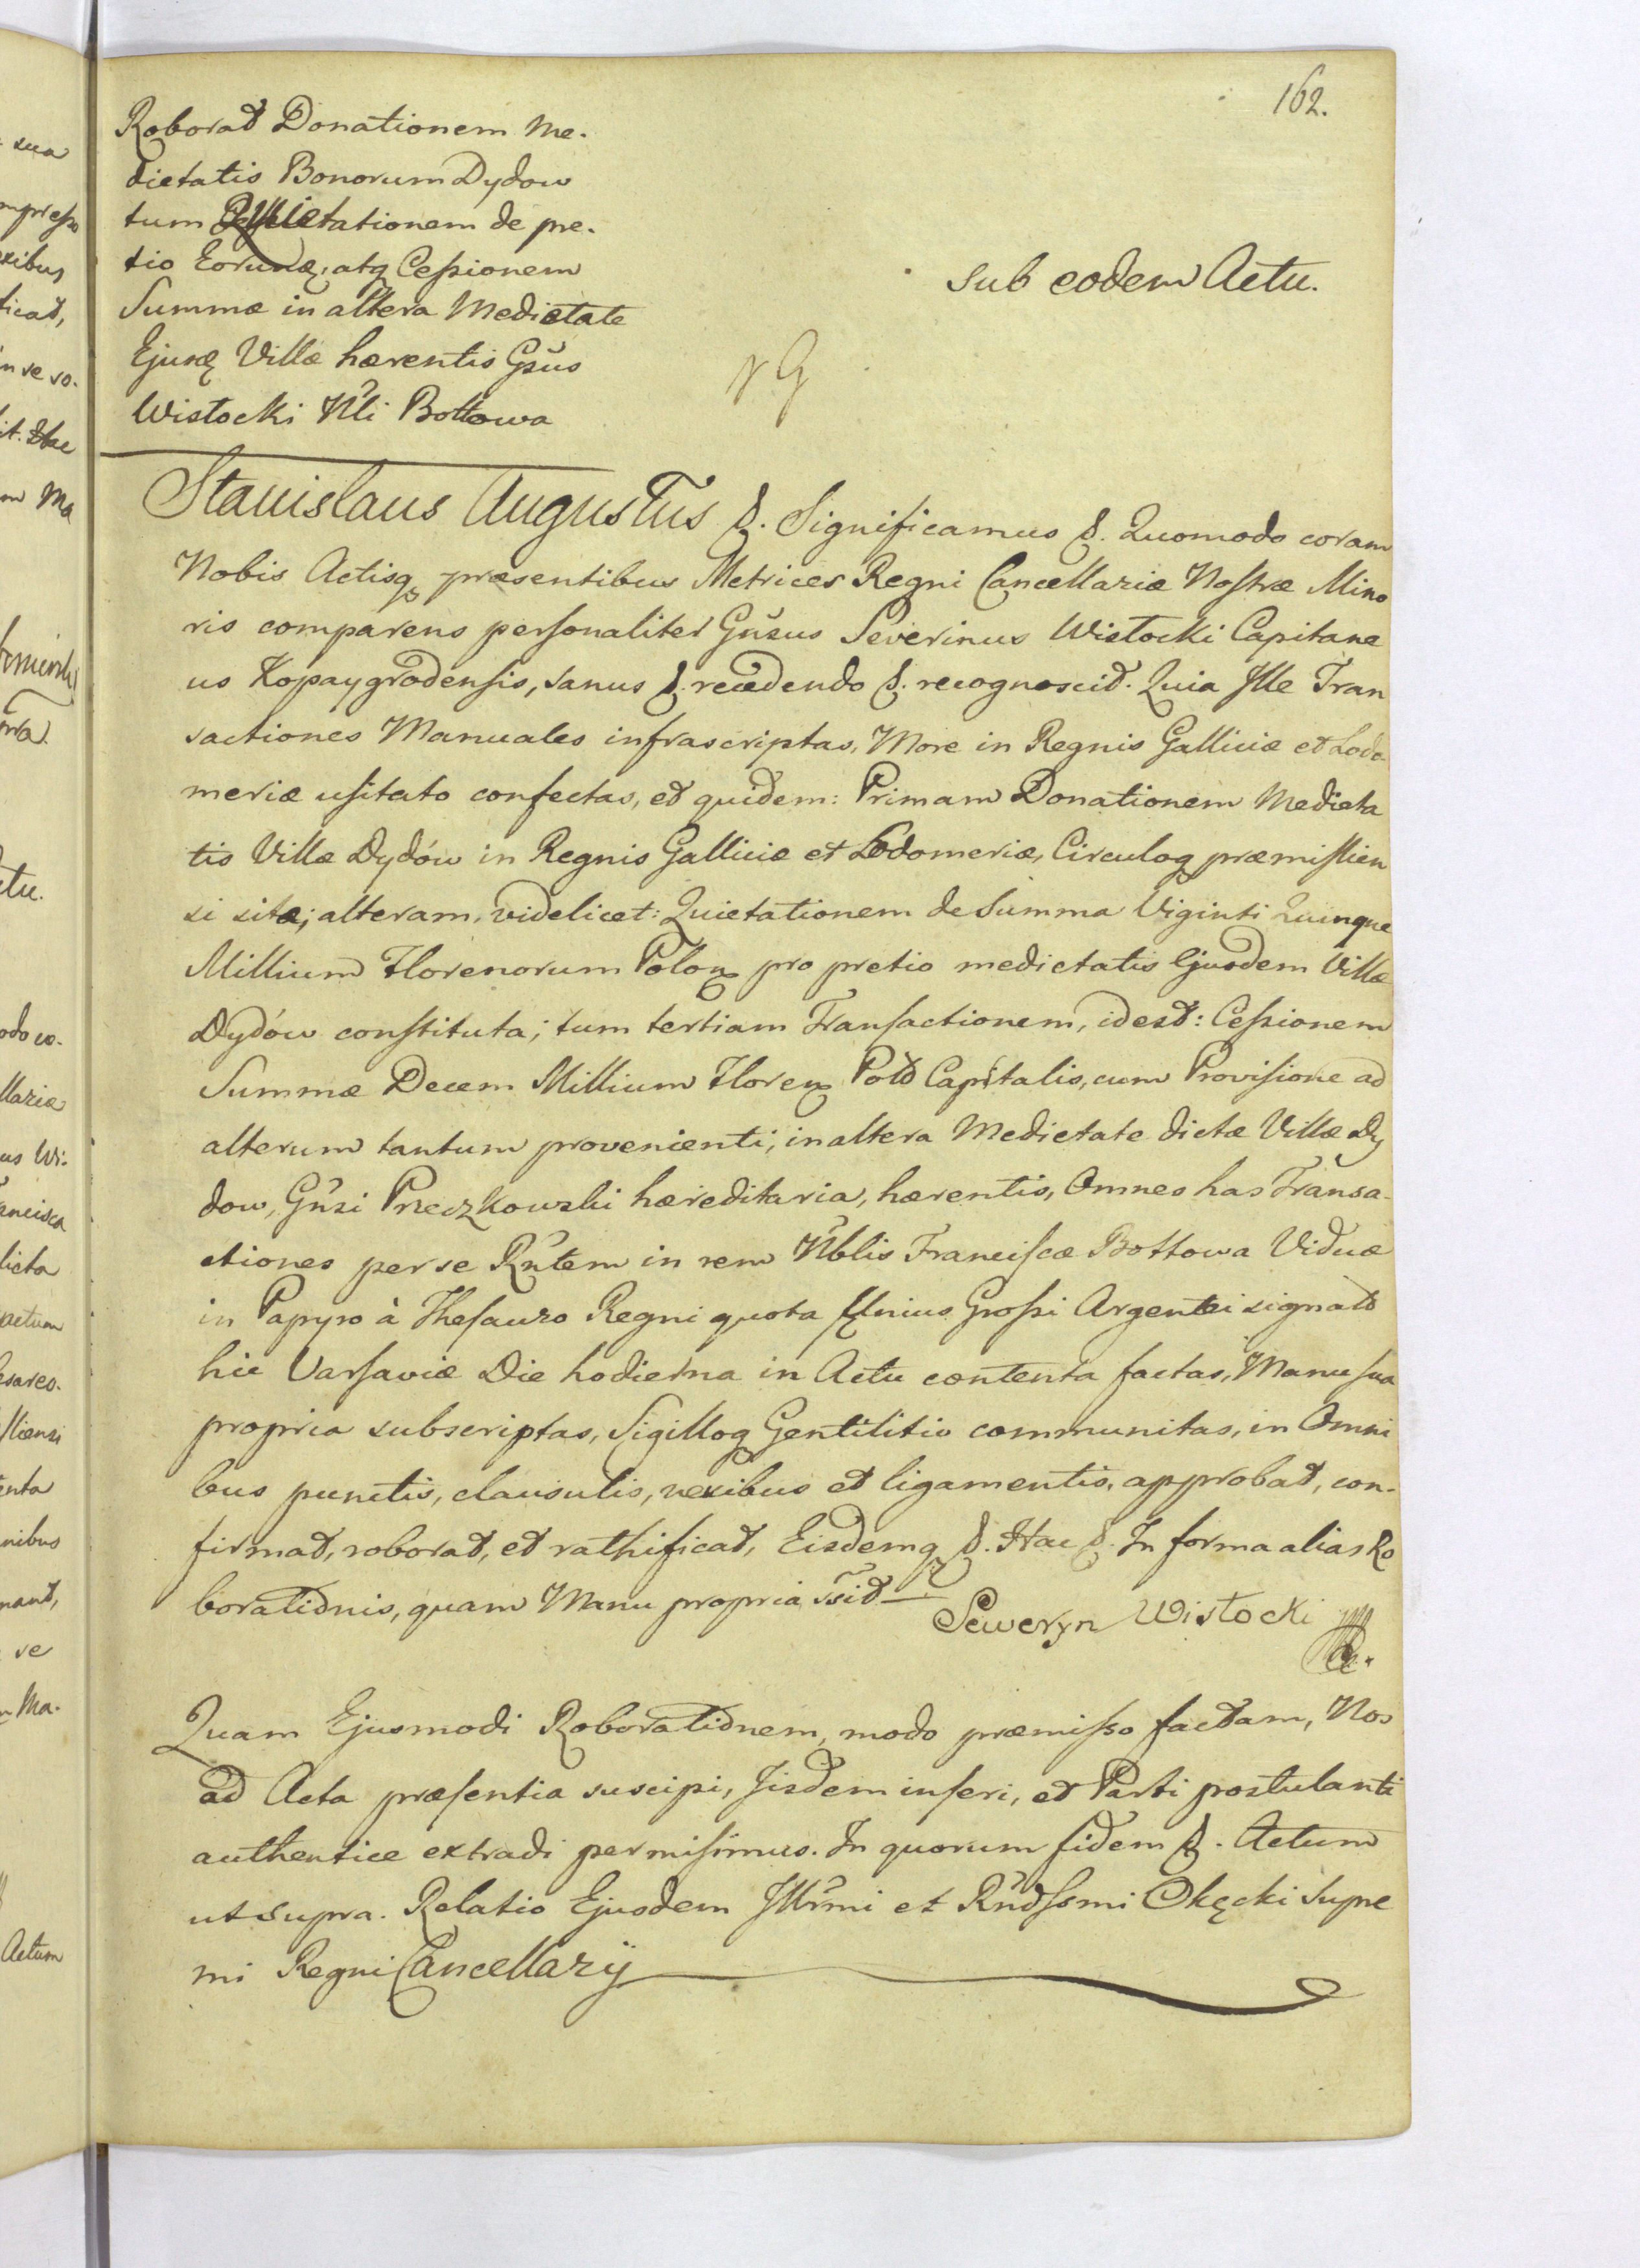 162.
Roborat Donationem Me-
dietatis Bonorum Dydow
tum Quietationem de pre-
tio Eorundę, atq Cessionem
Summæ in altera Medietate
Ejusdę Villæ hærentis Gsũs
Wisłocki Nli Bottowa
sub eodem Actu.
Stanislaus Augustus &. Significamus &. Quomodo coram
Nobis Actisq præsentibus Metrices Regni Cancellariæ Nostræ Mino
ris comparens personaliter Gñsus Severinus Wisłocki Capitane
us Kopaygrodensis, sanus &. recedendo &. recognoscit. Quia Ille Tran
sactiones Manuales infrascriptas, More in Regnis Galliciæ et Lodo
meriæ usitato confectas, et quidem: Primam Donationem Medieta
tis Villæ Dydów in Regnis Galliciæ et Lodomeriæ, Circuloq præmislien
si sitæ; alteram, videlicet: Quietationem de Summa Viginti Quinque
Millium Florenorum Polon pro pretio medietatis Ejusdem Villæ
Dydów constituta; tum tertiam Transactionem, id est: Cessionem
Summæ Decem Millium Floren Pold Capitalis, cum Provisione ad
alterum tantum provenienti, in altera Medietate dictæ Villæ Dy
dow, Gñsi Przeczkowski hæreditaria, hærentis, Omnes has Transa-
ctiones per se Rñtem in rem Nblis Franciscæ Bottowa Viduæ
in Papyro à Thesauro Regni quota Unius Grossi Argentei signato
hic Varsaviæ Die hodierna in Actu contenta factas, Manu sua
propria subscriptas, Sigilloq Gentilitio communitas, in Omni
bus punctis, clausulis, nexibus et ligamentis, approbat, con-
firmat, roborat, et rathificat, Eisdemq &. Hac &. In forma alias Ro
borationis, quam Manu propria ssit
Seweryn Wisłocki
Quam Ejusmodi Roborationem, modo præmisso factam, Nos
ad Acta præsentia suscipi, Iisdem inseri, et Parti postulanti
authentice extradi permisimus. In quorum fidem &. Actum
ut supra. Relatio Ejusdem Illrmi et Rñdssmi Okęcki Supre
mi Regni Cancellarij